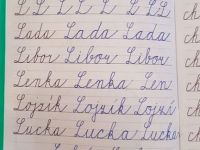 L L L L L L L L
Lada Lada Lada
Libor Libor Libor
Lenka Lenka Len
Lojzík Lojzík Lojzí
Lucka Lucka Lucka